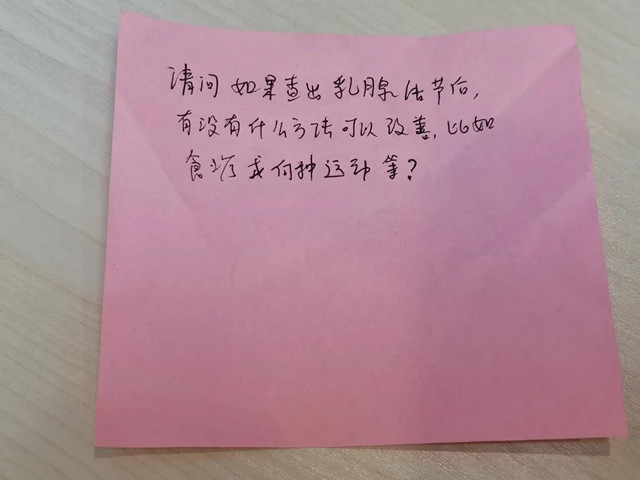 请问如果查出乳腺结节后,
有没有什么方法可以改善,比如
食疗或何种运动等?